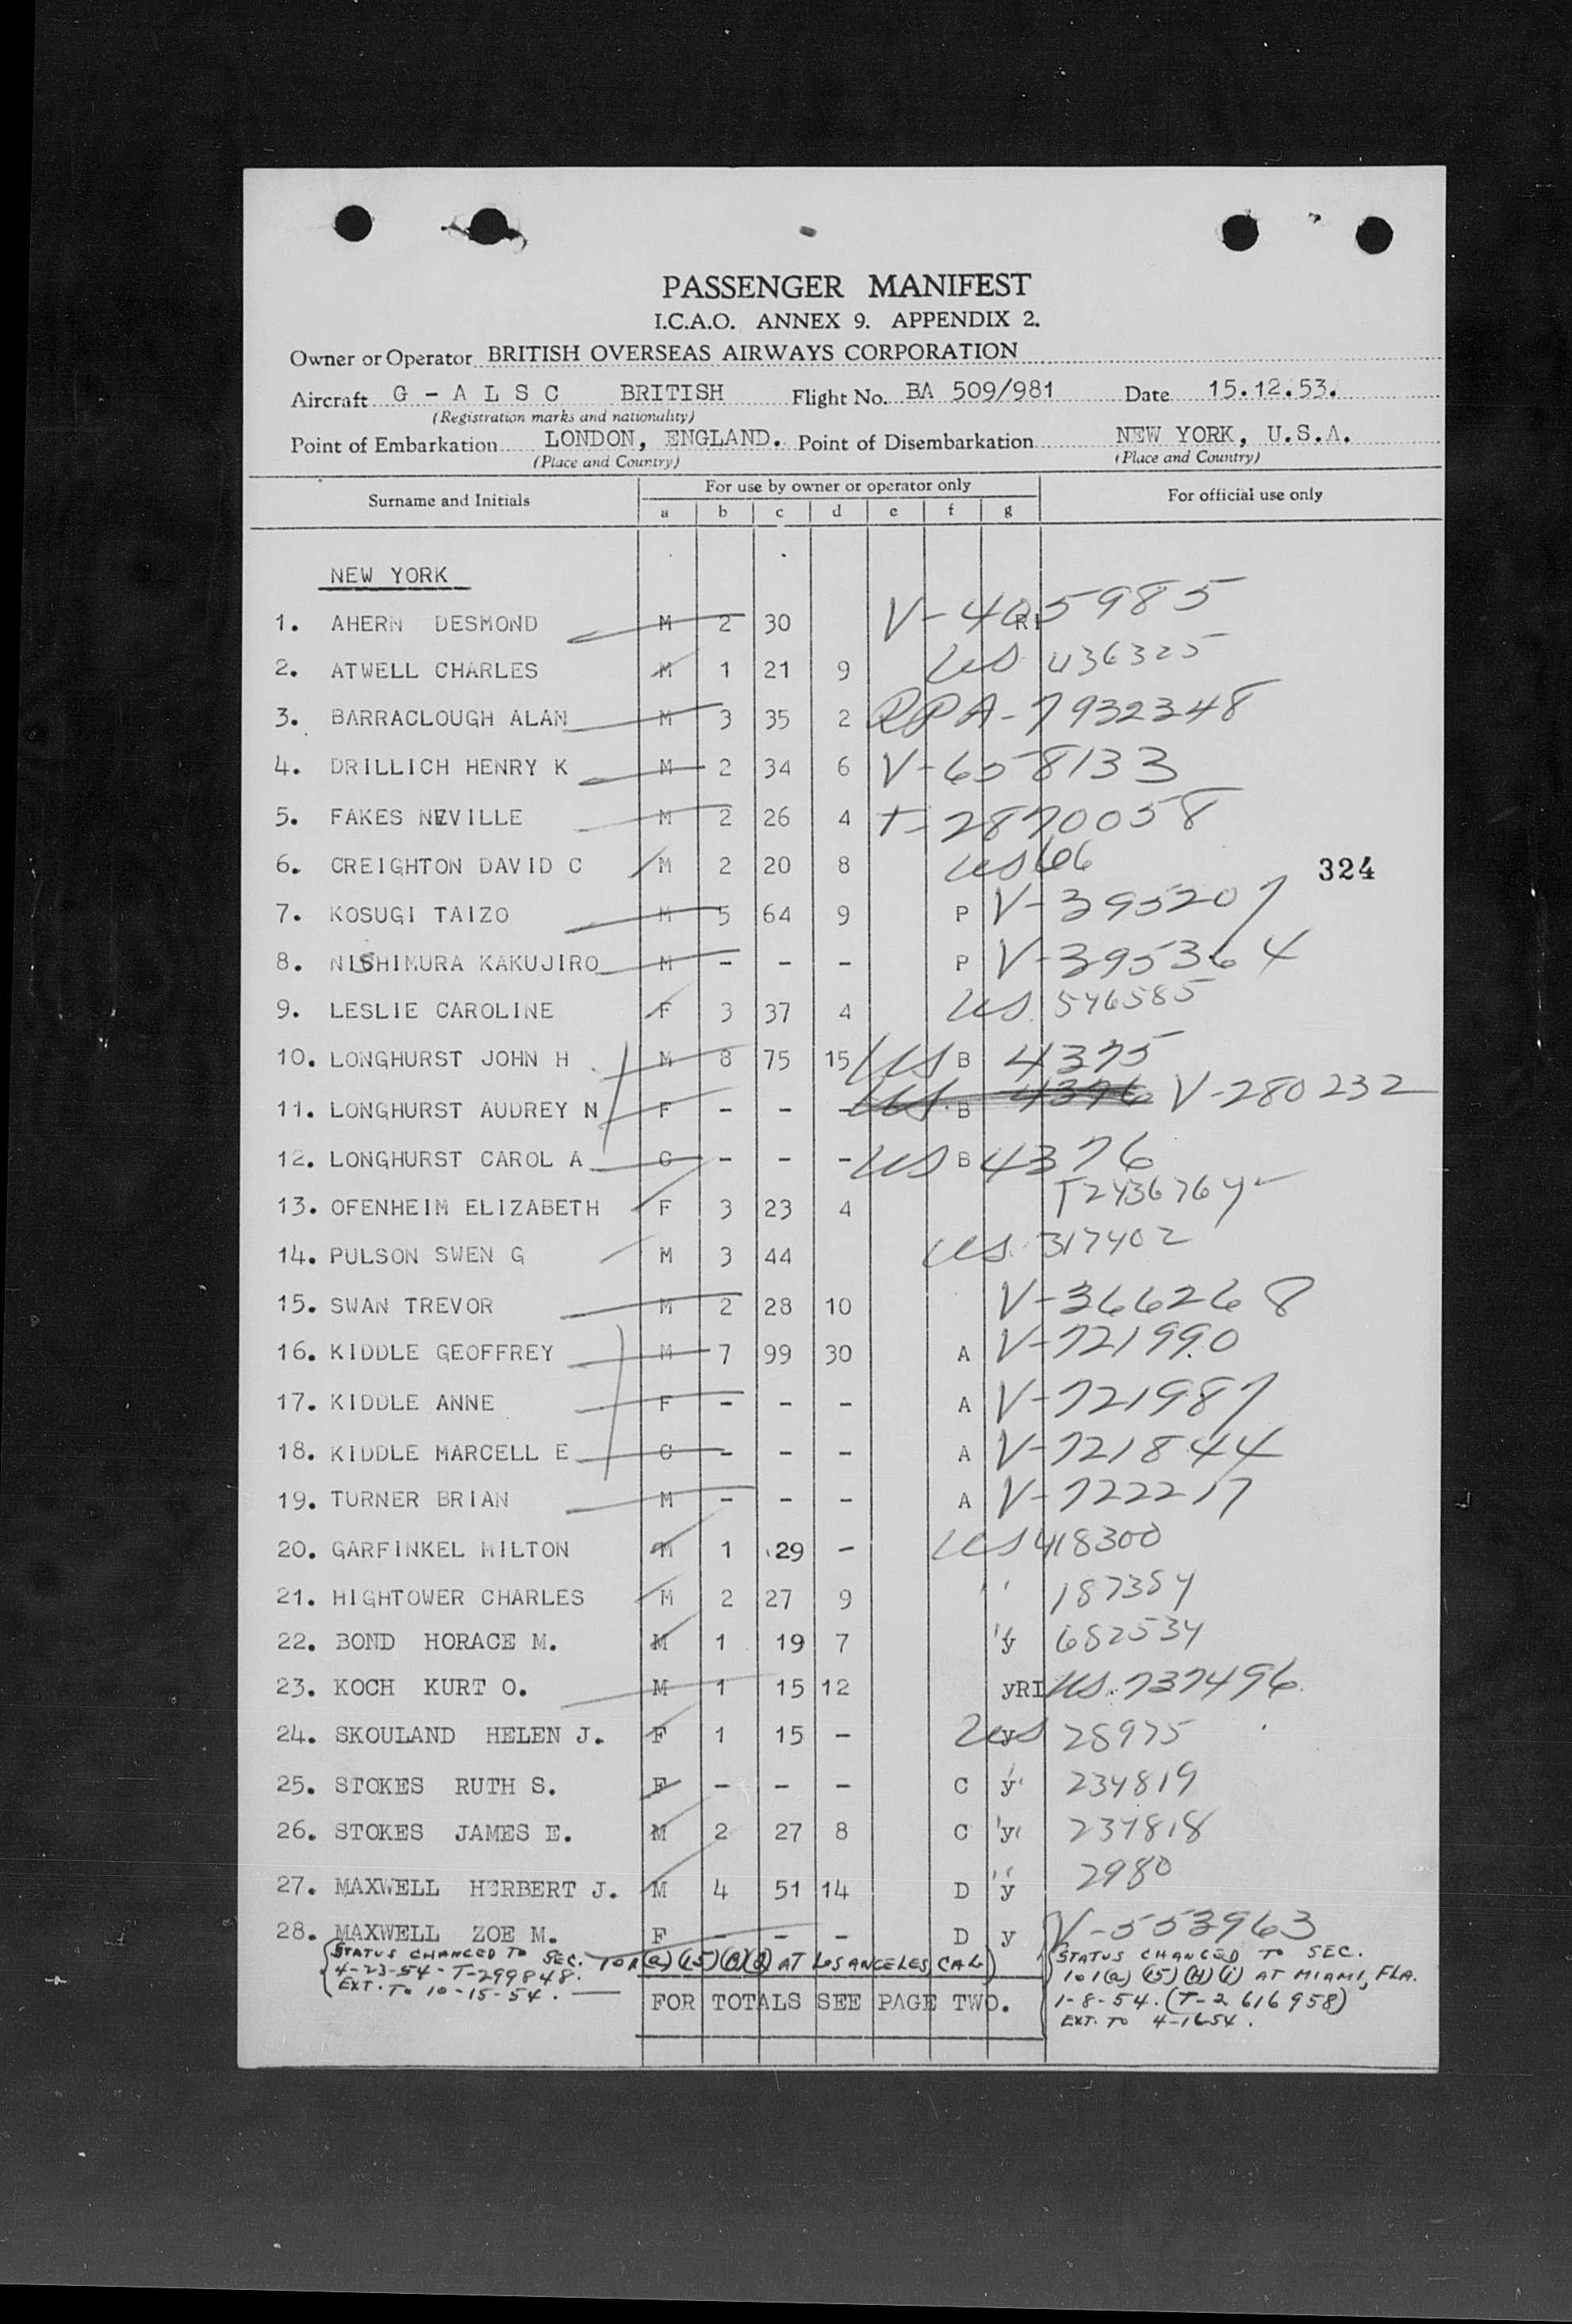 PASSENGER MANIFEST
I.C.A.O. ANNEX 9. APPENDIX 2.
Owner or Operator BRITISH OVERSEAS AIRWAYS CORPORATION
Aircraft G - A L S C BRITISH Flight No. BA 509/981 Date 15.12.53.
(Registration marks and nationality)
Point of Embarkation LONDON, ENGLAND. Point of Disembarkation NEW YORK, U.S.A.
(Place and Country) (Place and Country)
Surname and Initials For use by owner or operator only For official use only
a b c d e f g
NEW YORK
1. AHERN DESMOND M 2 30 RI V-405985
2. ATWELL CHARLES M 1 21 9 US 436325
3. BARRACLOUGH ALAN M 3 35 2 RPA-7932348
4. DRILLICH HENRY K M 2 34 6 V-658133
5. FAKES NEVILLE M 2 26 4 T-2870058
6. CREIGHTON DAVID C M 2 20 8 US 606
324
7. KOSUGI TAIZO M 5 64 9 P V-395207
8. NISHIMURA KAKUJIRO M - - - P V-395364
9. LESLIE CAROLINE F 3 37 4 US 546585
10. LONGHURST JOHN H M 8 75 15 US B 4375
11. LONGHURST AUDREY N F - - - US B 4376 V-280232
12. LONGHURST CAROL A C - - - US B 4376
13. OFENHEIM ELIZABETH F 3 23 4 T2436764
14. PULSON SWEN G M 3 44 US 317402
15. SWAN TREVOR M 2 28 10 V-366268
16. KIDDLE GEOFFREY M 7 99 30 A V-721990
17. KIDDLE ANNE F - - - A V-721987
18. KIDDLE MARCELL E C - - - A V-721844
19. TURNER BRIAN M - - - A V-722217
20. GARFINKEL MILTON M 1 29 - US 418300
21. HIGHTOWER CHARLES M 2 27 9 " 187384
22. BOND HORACE M. M 1 19 7 y 682534
23. KOCH KURT O. M 1 15 12 yRI US. 737496
24. SKOULAND HELEN J. F 1 15 - US y 28975
25. STOKES RUTH S. F - - - C y 234819
26. STOKES JAMES E. M 2 27 8 C y 234818
27. MAXWELL HERBERT J. M 4 51 14 D y 2980
28. MAXWELL ZOE M. F - - - D y V-553963
STATUS CHANGED TO SEC. 101(a)(15)(B) AT LOS ANGELES CAL
4-23-54 - T-299848.
EXT. TO 10-15-54.
STATUS CHANGED TO SEC.
101(a)(15)(H)(i) AT MIAMI, FLA.
1-8-54. (T-2616958)
EXT. TO 4-16-54.
FOR TOTALS SEE PAGE TWO.